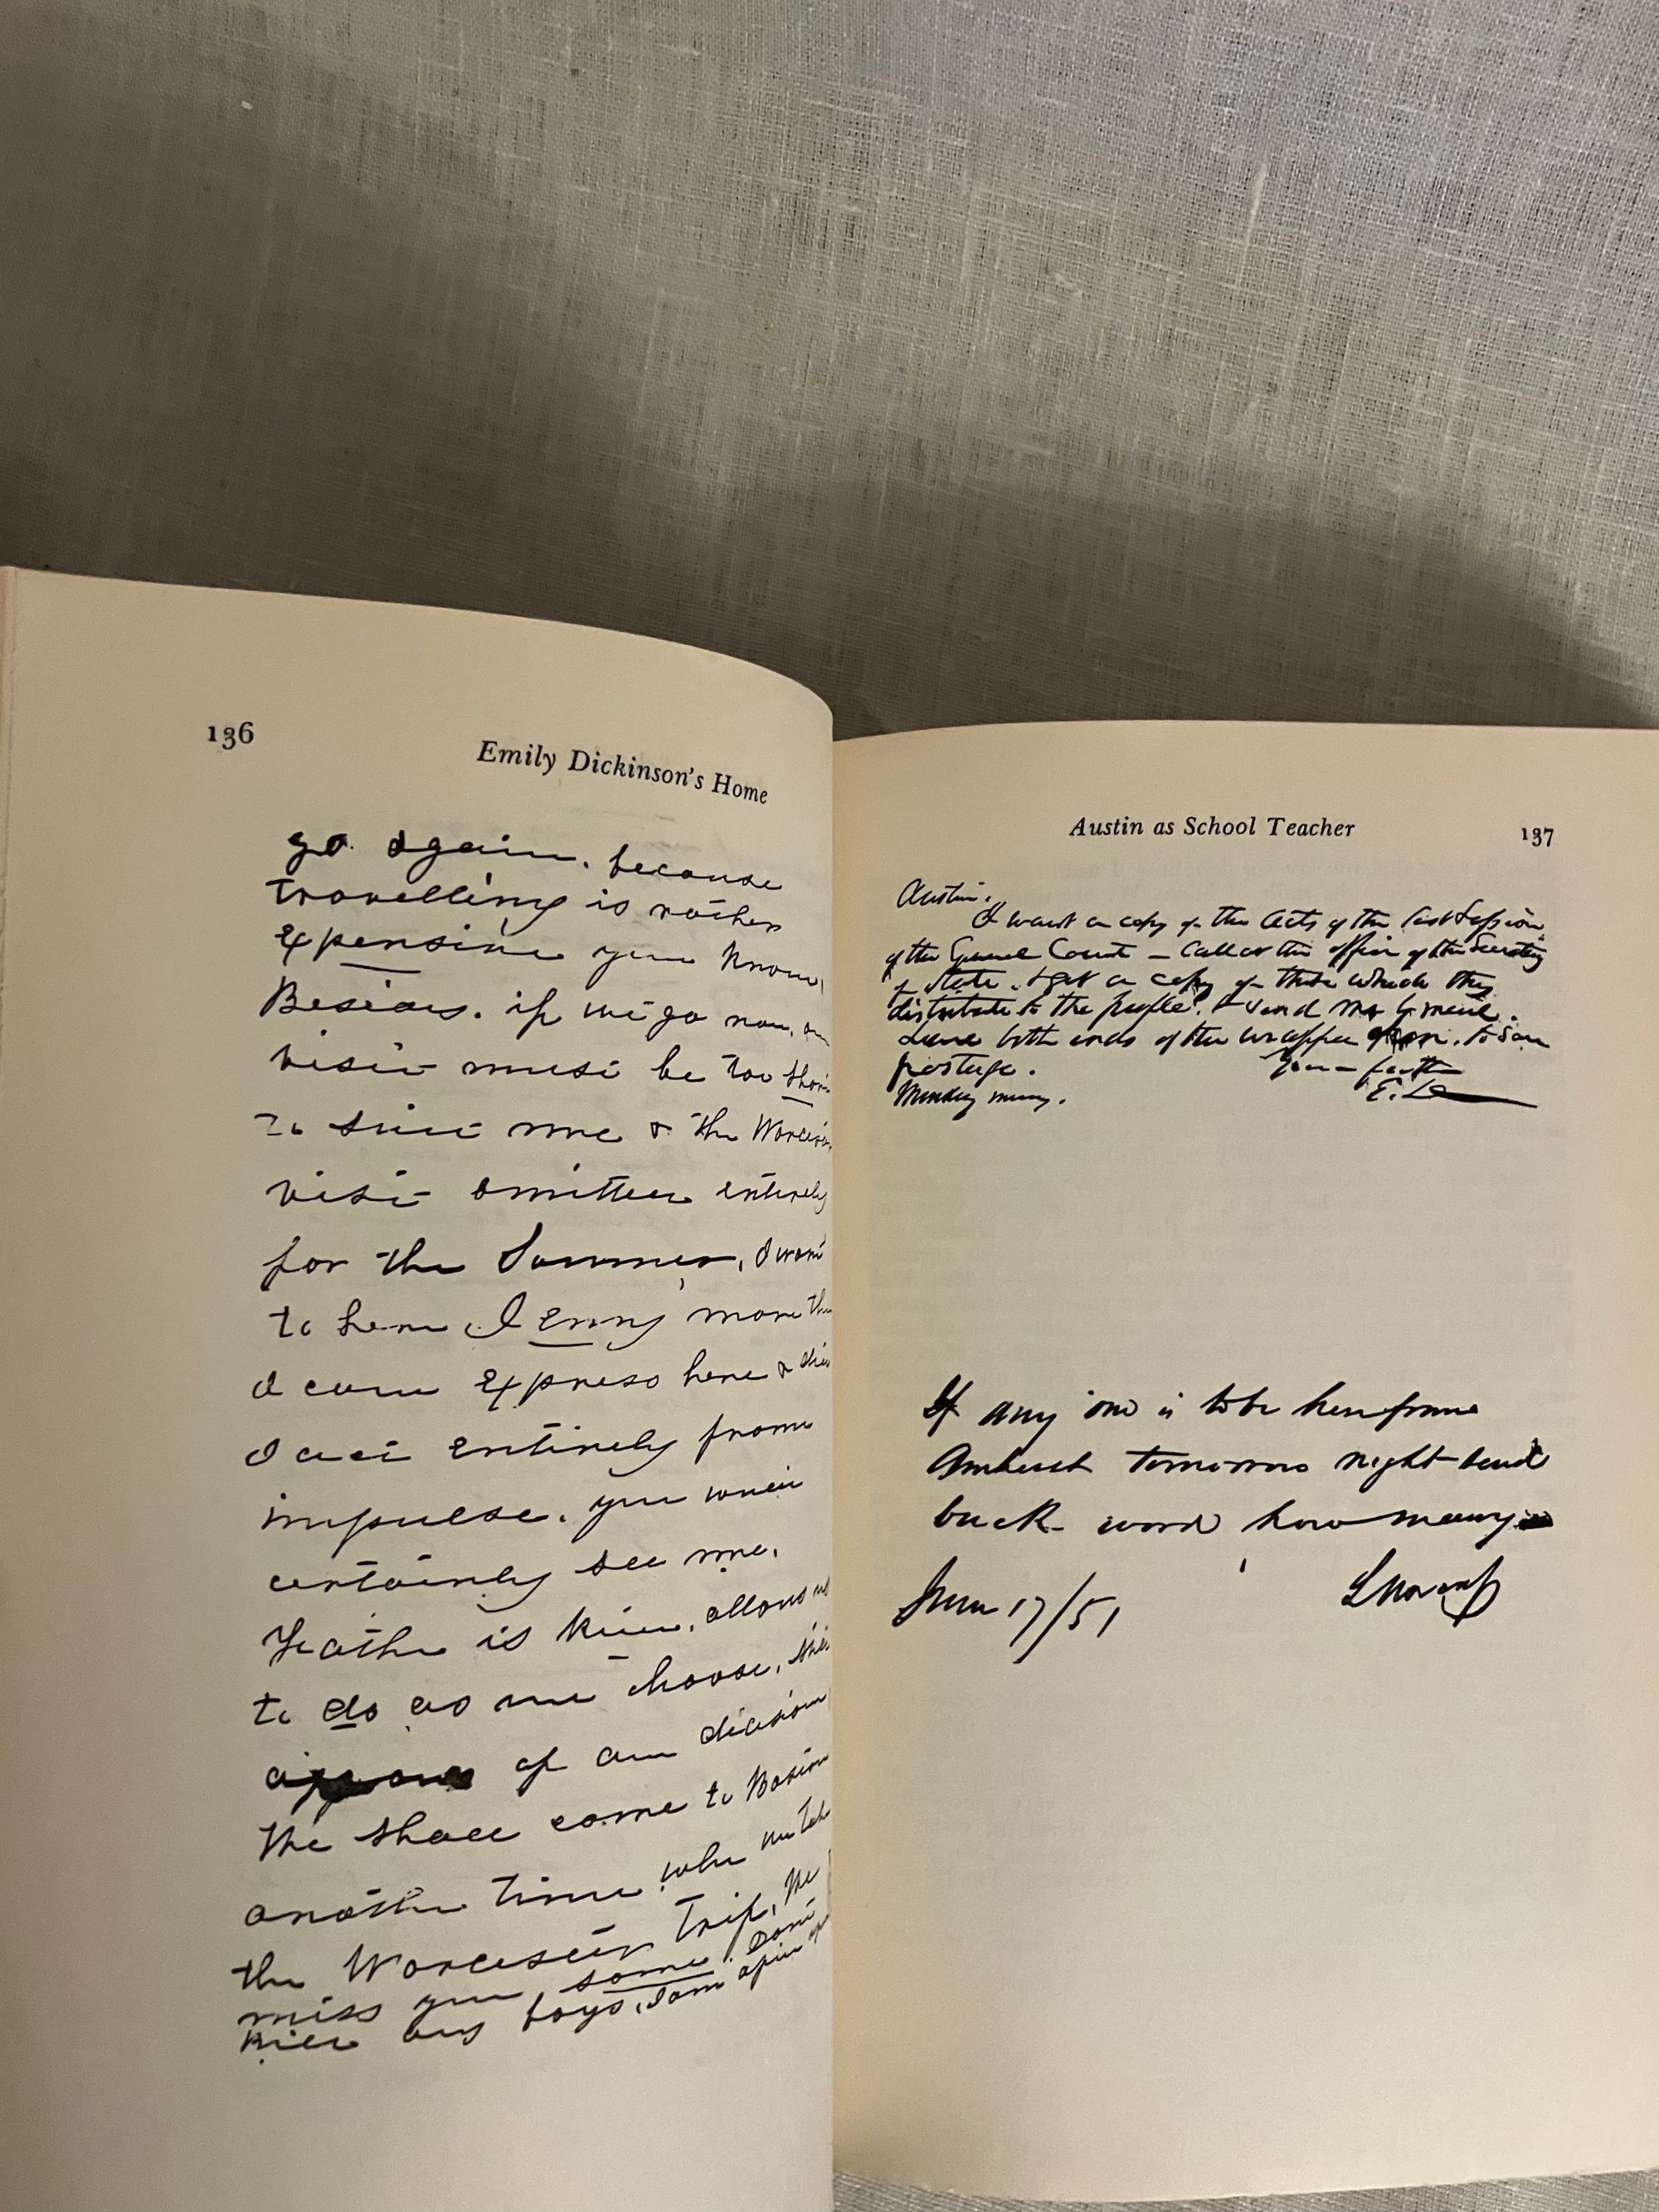 136
Emily Dickinson's Home
go again. because
travelling is rather
expensive you know,
Besides. if we go now, our
visit must be too
to suit me & the
visit omitted entirely
for the Summer, I want
to hear Jenny more
I can express here &
I act entirely from
impulse. you will
certainly see me.
Father is kind, allows us
to do as we choose,
approves of our decision
We shall come to Boston
another time when we
the Worcester trip, We
miss you some. Dont
kill any boys, I am
Austin as School Teacher
137
Austin.
I want a copy of the Acts of the last Session
of the General Court – Call at the office of the Secretary
of State. & get a copy of those which they
distribute to the people. & send me by mail.
Leave both ends of the wrapper open. to save
postage.
Your father
Monday morng.
E. D
If any one is to be here from
Amherst tomorrow night send
back word how many
June 17/51